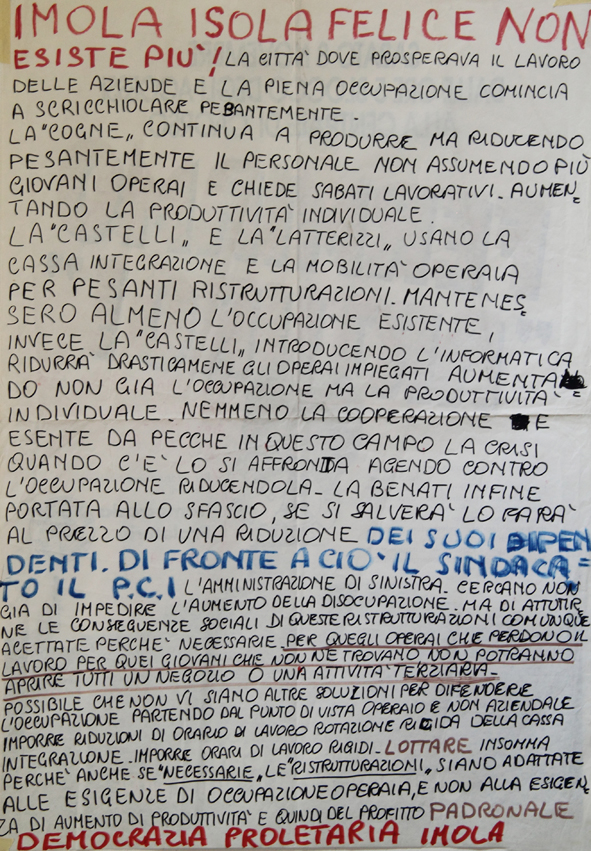 IMOLA ISOLA FELICE NON
ESISTE PIU'! LA CITTA' DOVE PROSPERAVA IL LAVORO
DELLE AZIENDE E LA PIENA OCCUPAZIONE COMINCIA
A SCRICCHIOLARE PESANTEMENTE.
LA "COGNE" CONTINUA A PRODURRE MA RIDUCENDO
PESANTEMENTE IL PERSONALE NON ASSUMENDO PIÙ
GIOVANI OPERAI E CHIEDE SABATI LAVORATIVI. AUMEN=
TANDO LA PRODUTTIVITA' INDIVIDUALE.
LA "CASTELLI" E LA "LATTERIZZI" USANO LA
CASSA INTEGRAZIONE E LA MOBILITA' OPERAIA
PER PESANTI RISTRUTTURAZIONI. MANTENES=
SERO ALMENO L'OCCUPAZIONE ESISTENTE,
INVECE LA "CASTELLI" INTRODUCENDO L'INFORMATICA
RIDURRA' DRASTICAMENE GLI OPERAI IMPIEGATI AUMENTA
DO NON GIA L'OCCUPAZIONE MA LA PRODUTTIVITA' =
INDIVIDUALE. NEMMENO LA COOPERAZIONE E
ESENTE DA PECCHE IN QUESTO CAMPO LA CRISI
QUANDO C'E' LO SI AFFRONDA AGENDO CONTRO
L'OCCUPAZIONE RIDUCENDOLA. LA BENATI INFINE
PORTATA ALLO SFASCIO, SE SI SALVERA' LO FARA'
AL PREZZO DI UNA RIDUZIONE DEI SUOI DIPEN
DENTI. DI FRONTE A CIO' IL SINDACA=
TO IL P.C.I L'AMMINISTRAZIONE DI SINISTRA. CERCANO NON
GIA DI IMPEDIRE L'AUMENTO DELLA DISOCUPAZIONE. MA DI ATTUTIR
NE LE CONSEGUENZE SOCIALI DI QUESTE RISTRUTTURAZIONI COMUNQUE
ACETTATE PERCHE' NECESSARIE. PER QUEGLI OPERAI CHE PERDONO IL
LAVORO PER QUEI GIOVANI CHE NON NE TROVANO NON POTRANNO
APRIRE TUTTI UN NEGOZIO O UNA ATTIVITA' TERZIARIA.
POSSIBILE CHE NON VI SIANO ALTRE SOLUZIONI PER DIFENDERE
L'OCCUPAZIONE PARTENDO DAL PUNTO DI VISTA OPERAIO E NON AZIENDALE
IMPORRE RIDUZIONI DI ORARIO DI LAVORO ROTAZIONE RIGIDA DELLA CASSA
INTEGRAZIONE. IMPORRE ORARI DI LAVORO RIGIDI. LOTTARE INSOMMA
PERCHE' ANCHE SE "NECESSARIE" LE "RISTRUTTURAZIONI" SIANO ADATTATE
ALLE ESIGENZE DI OCCUPAZIONE OPERAIA, E NON ALLA ESIGEN=
ZA DI AUMENTO DI PRODUTTIVITA' E QUINDI DEL PROFITTO PADRONALE
DEMOCRAZIA PROLETARIA IMOLA